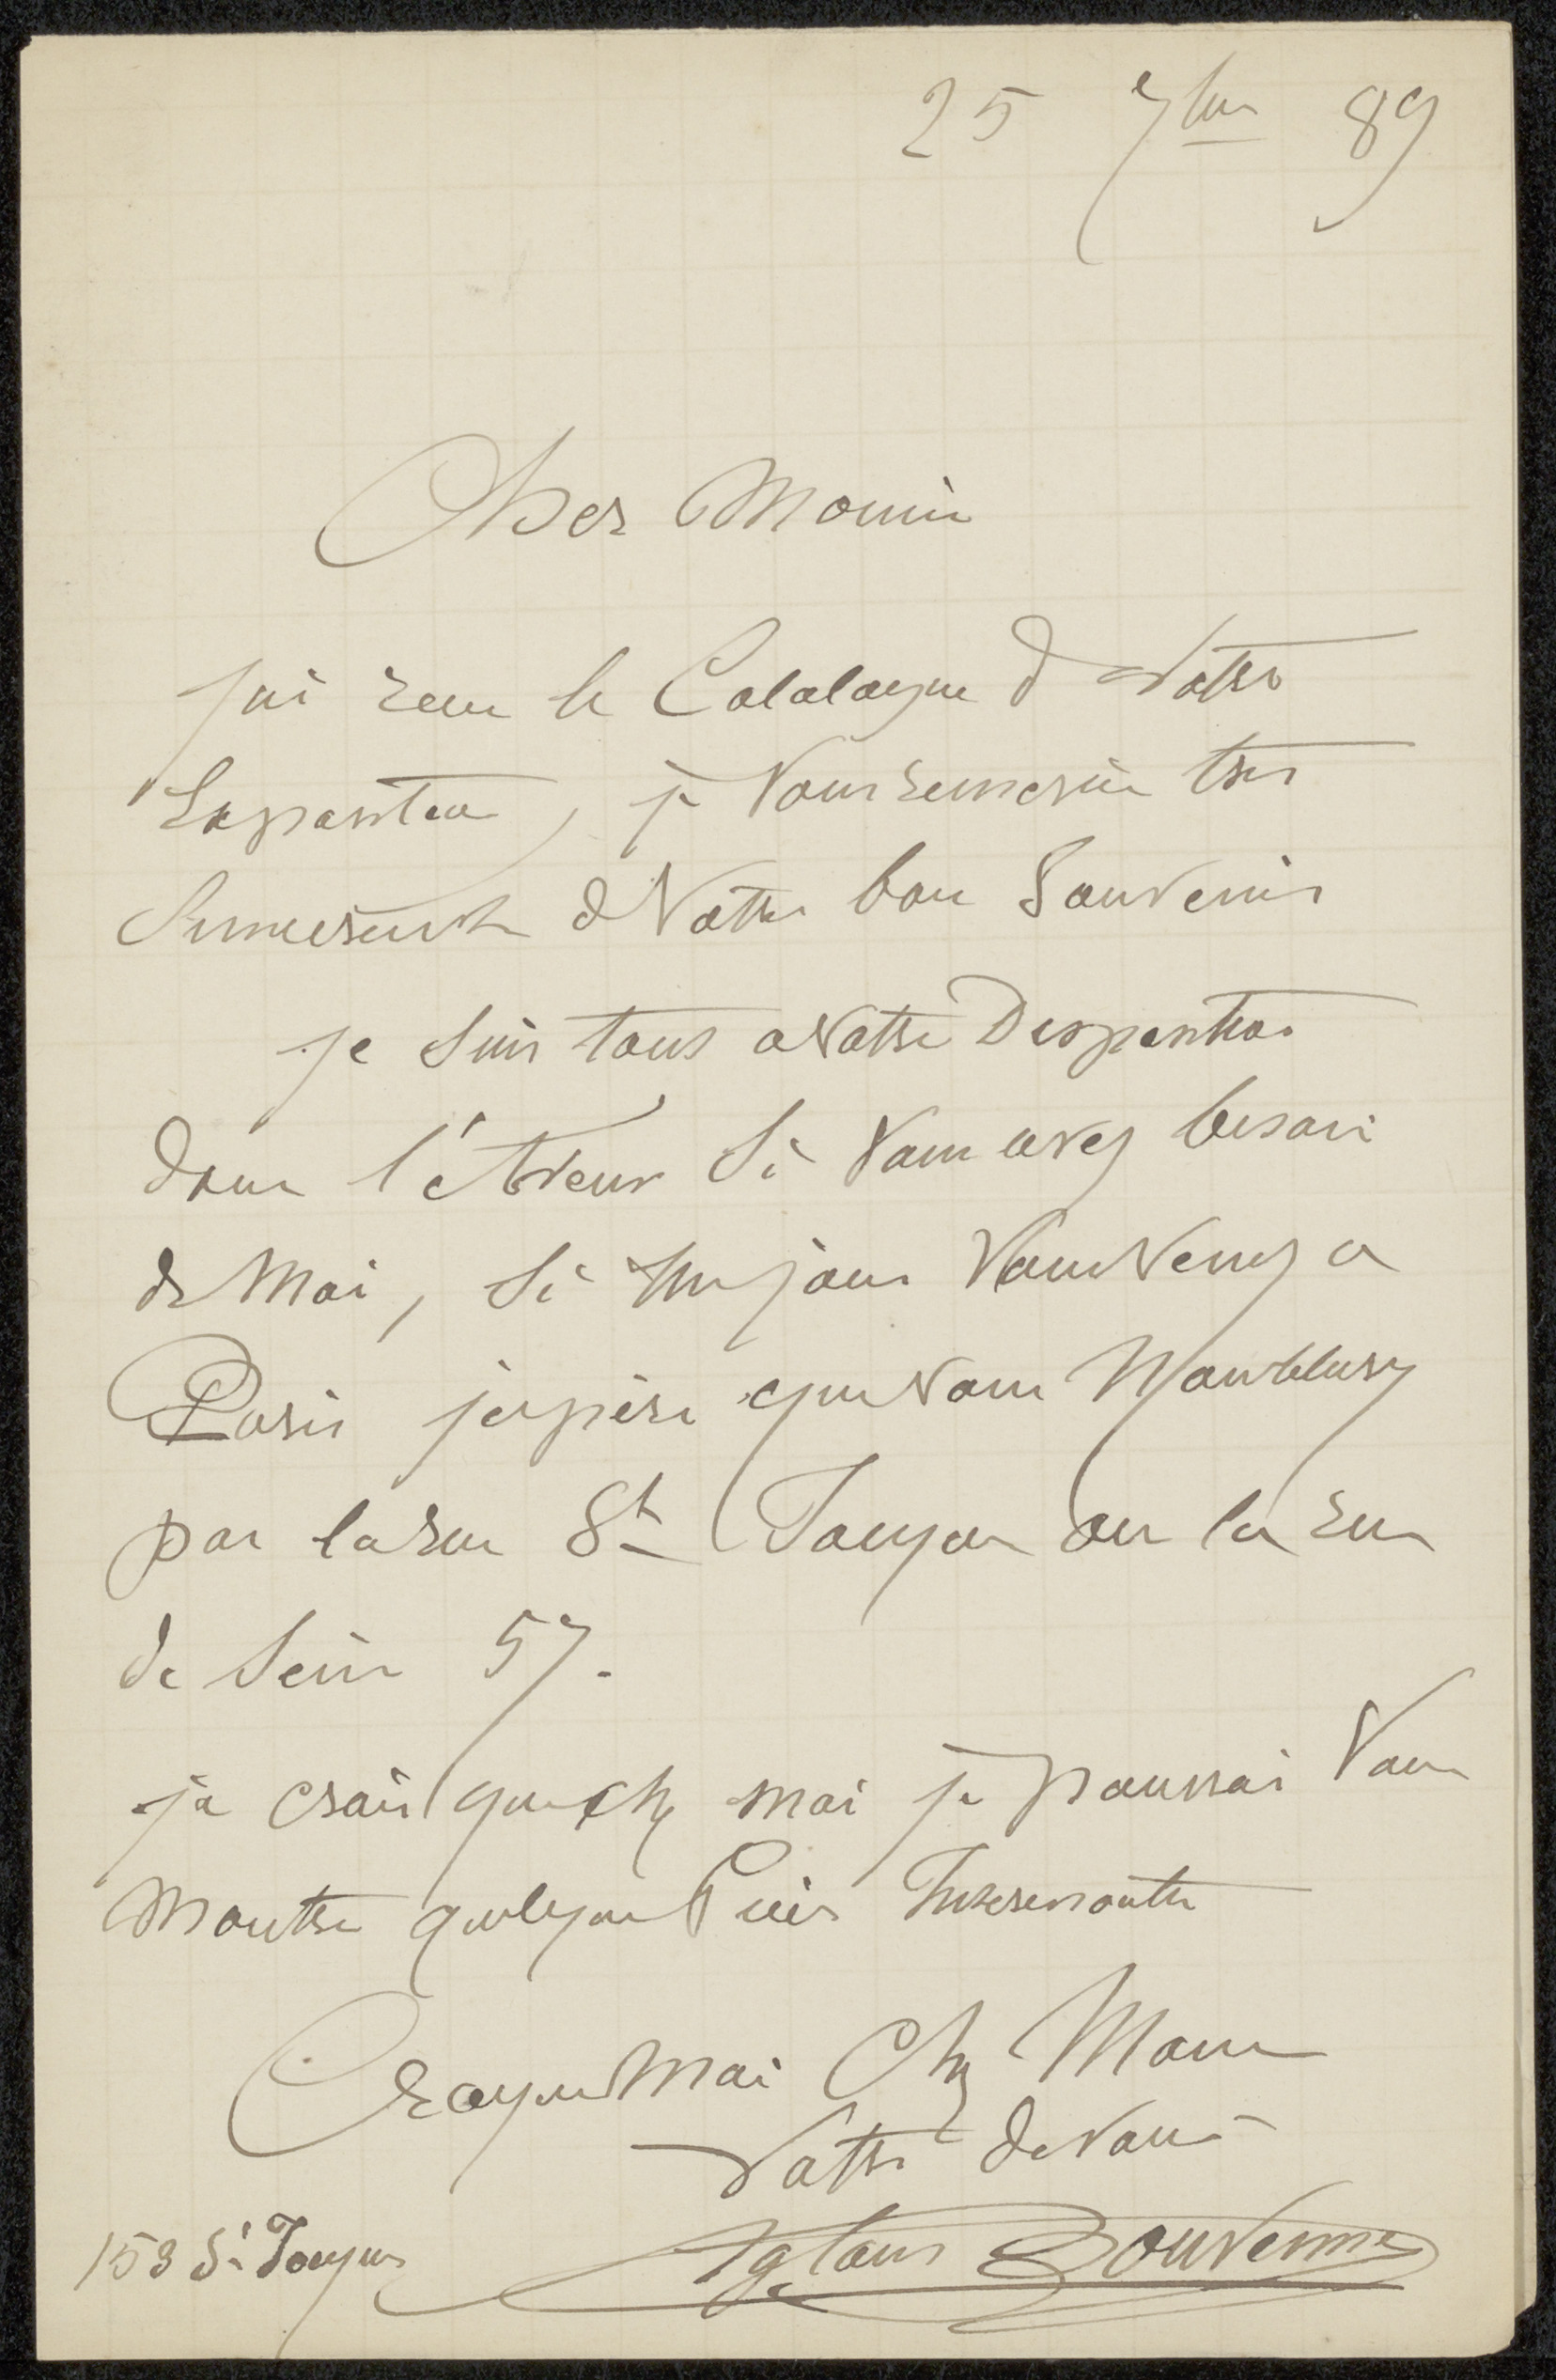 25 7bre 89
Cher Monsieur
j'ai reçu le Catalogue de Votre
Exposition, je Vous remercie très
Sincèrement de Votre bon Souvenir
je suis tous a Votre Disposition
dans l'avenir Si Vous avez besoin
de Moi, Si un jour Vous Venez a
Paris j'espère que Vous n'oublierez
pas la rue St Jacques ou la rue
de Seine 57.
je crois que chez moi je pourrai Vous
Montrer quelques Pièces Interessantes
Croyez Moi Cher Monsieur
Votre devoué
Aglaus Bouvenne
153 St Jacques